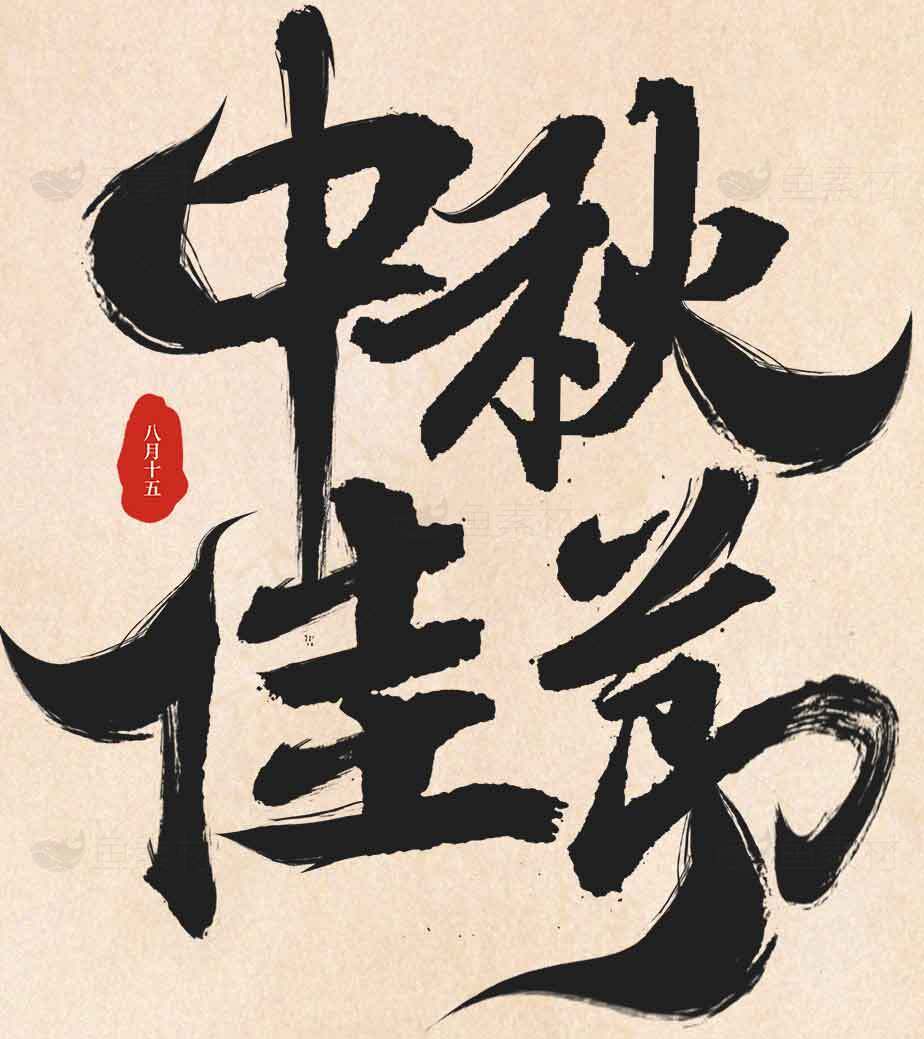 中秋
佳節
八月十五
鱼素材
鱼素材
鱼素材
鱼素材
鱼素材